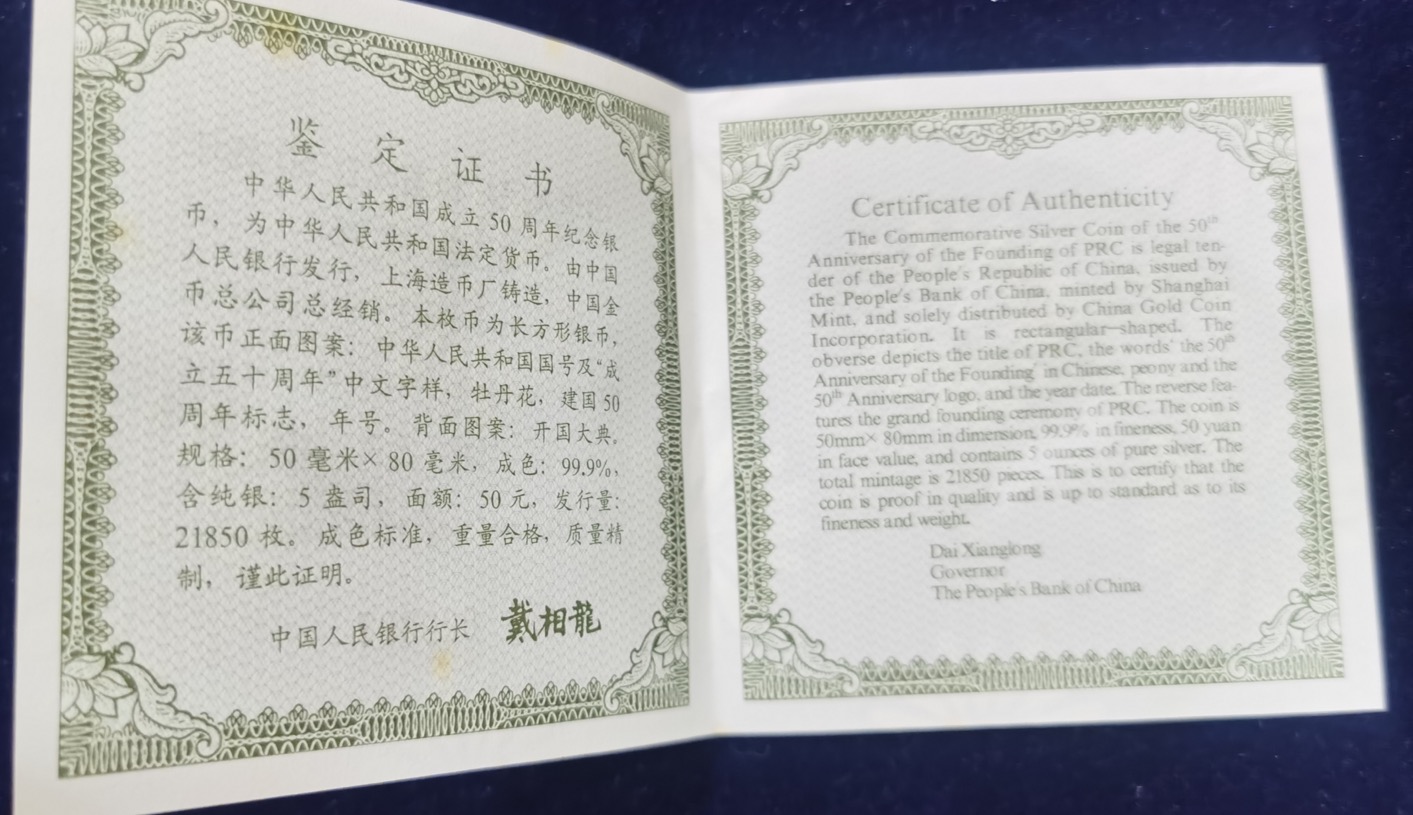 鉴定证书
中华人民共和国成立 50 周年纪念银
币，为中华人民共和国法定货币。由中国
人民银行发行，上海造币厂铸造，中国金
币总公司总经销。本枚币为长方形银币，
该币正面图案：中华人民共和国国号及“成
立五十周年”中文字样，牡丹花，建国 50
周年标志，年号。背面图案：开国大典。
规格：50 毫米× 80 毫米，成色：99.9%，
含纯银：5 盎司，面额：50 元，发行量：
21850 枚。成色标准，重量合格，质量精
制，谨此证明。
中国人民银行行长 戴相龍
Certificate of Authenticity
The Commemorative Silver Coin of the 50th
Anniversary of the Founding of PRC is legal ten-
der of the People's Republic of China, issued by
the People's Bank of China, minted by Shanghai
Mint, and solely distributed by China Gold Coin
Incorporation. It is rectangular-shaped. The
obverse depicts the title of PRC, the words' the 50th
Anniversary of the Founding' in Chinese, peony and the
50th Anniversary logo, and the year date. The reverse fea-
tures the grand founding ceremony of PRC. The coin is
50mm× 80mm in dimension, 99.9% in fineness, 50 yuan
in face value, and contains 5 ounces of pure silver. The
total mintage is 21850 pieces. This is to certify that the
coin is proof in quality and is up to standard as to its
fineness and weight.
Dai Xianglong
Governor
The People's Bank of China